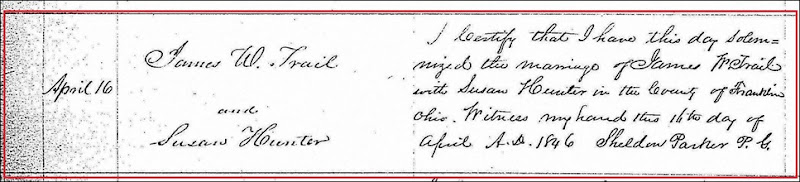 April 16
James W. Trail
and
Susan Hunter
I Certify that I have this day solem=
nized the marriage of James W Trail
with Susan Hunter in the County of Franklin
Ohio. Witness my hand this 16th day of
April A.D. 1846 Sheldon Parker P. G.